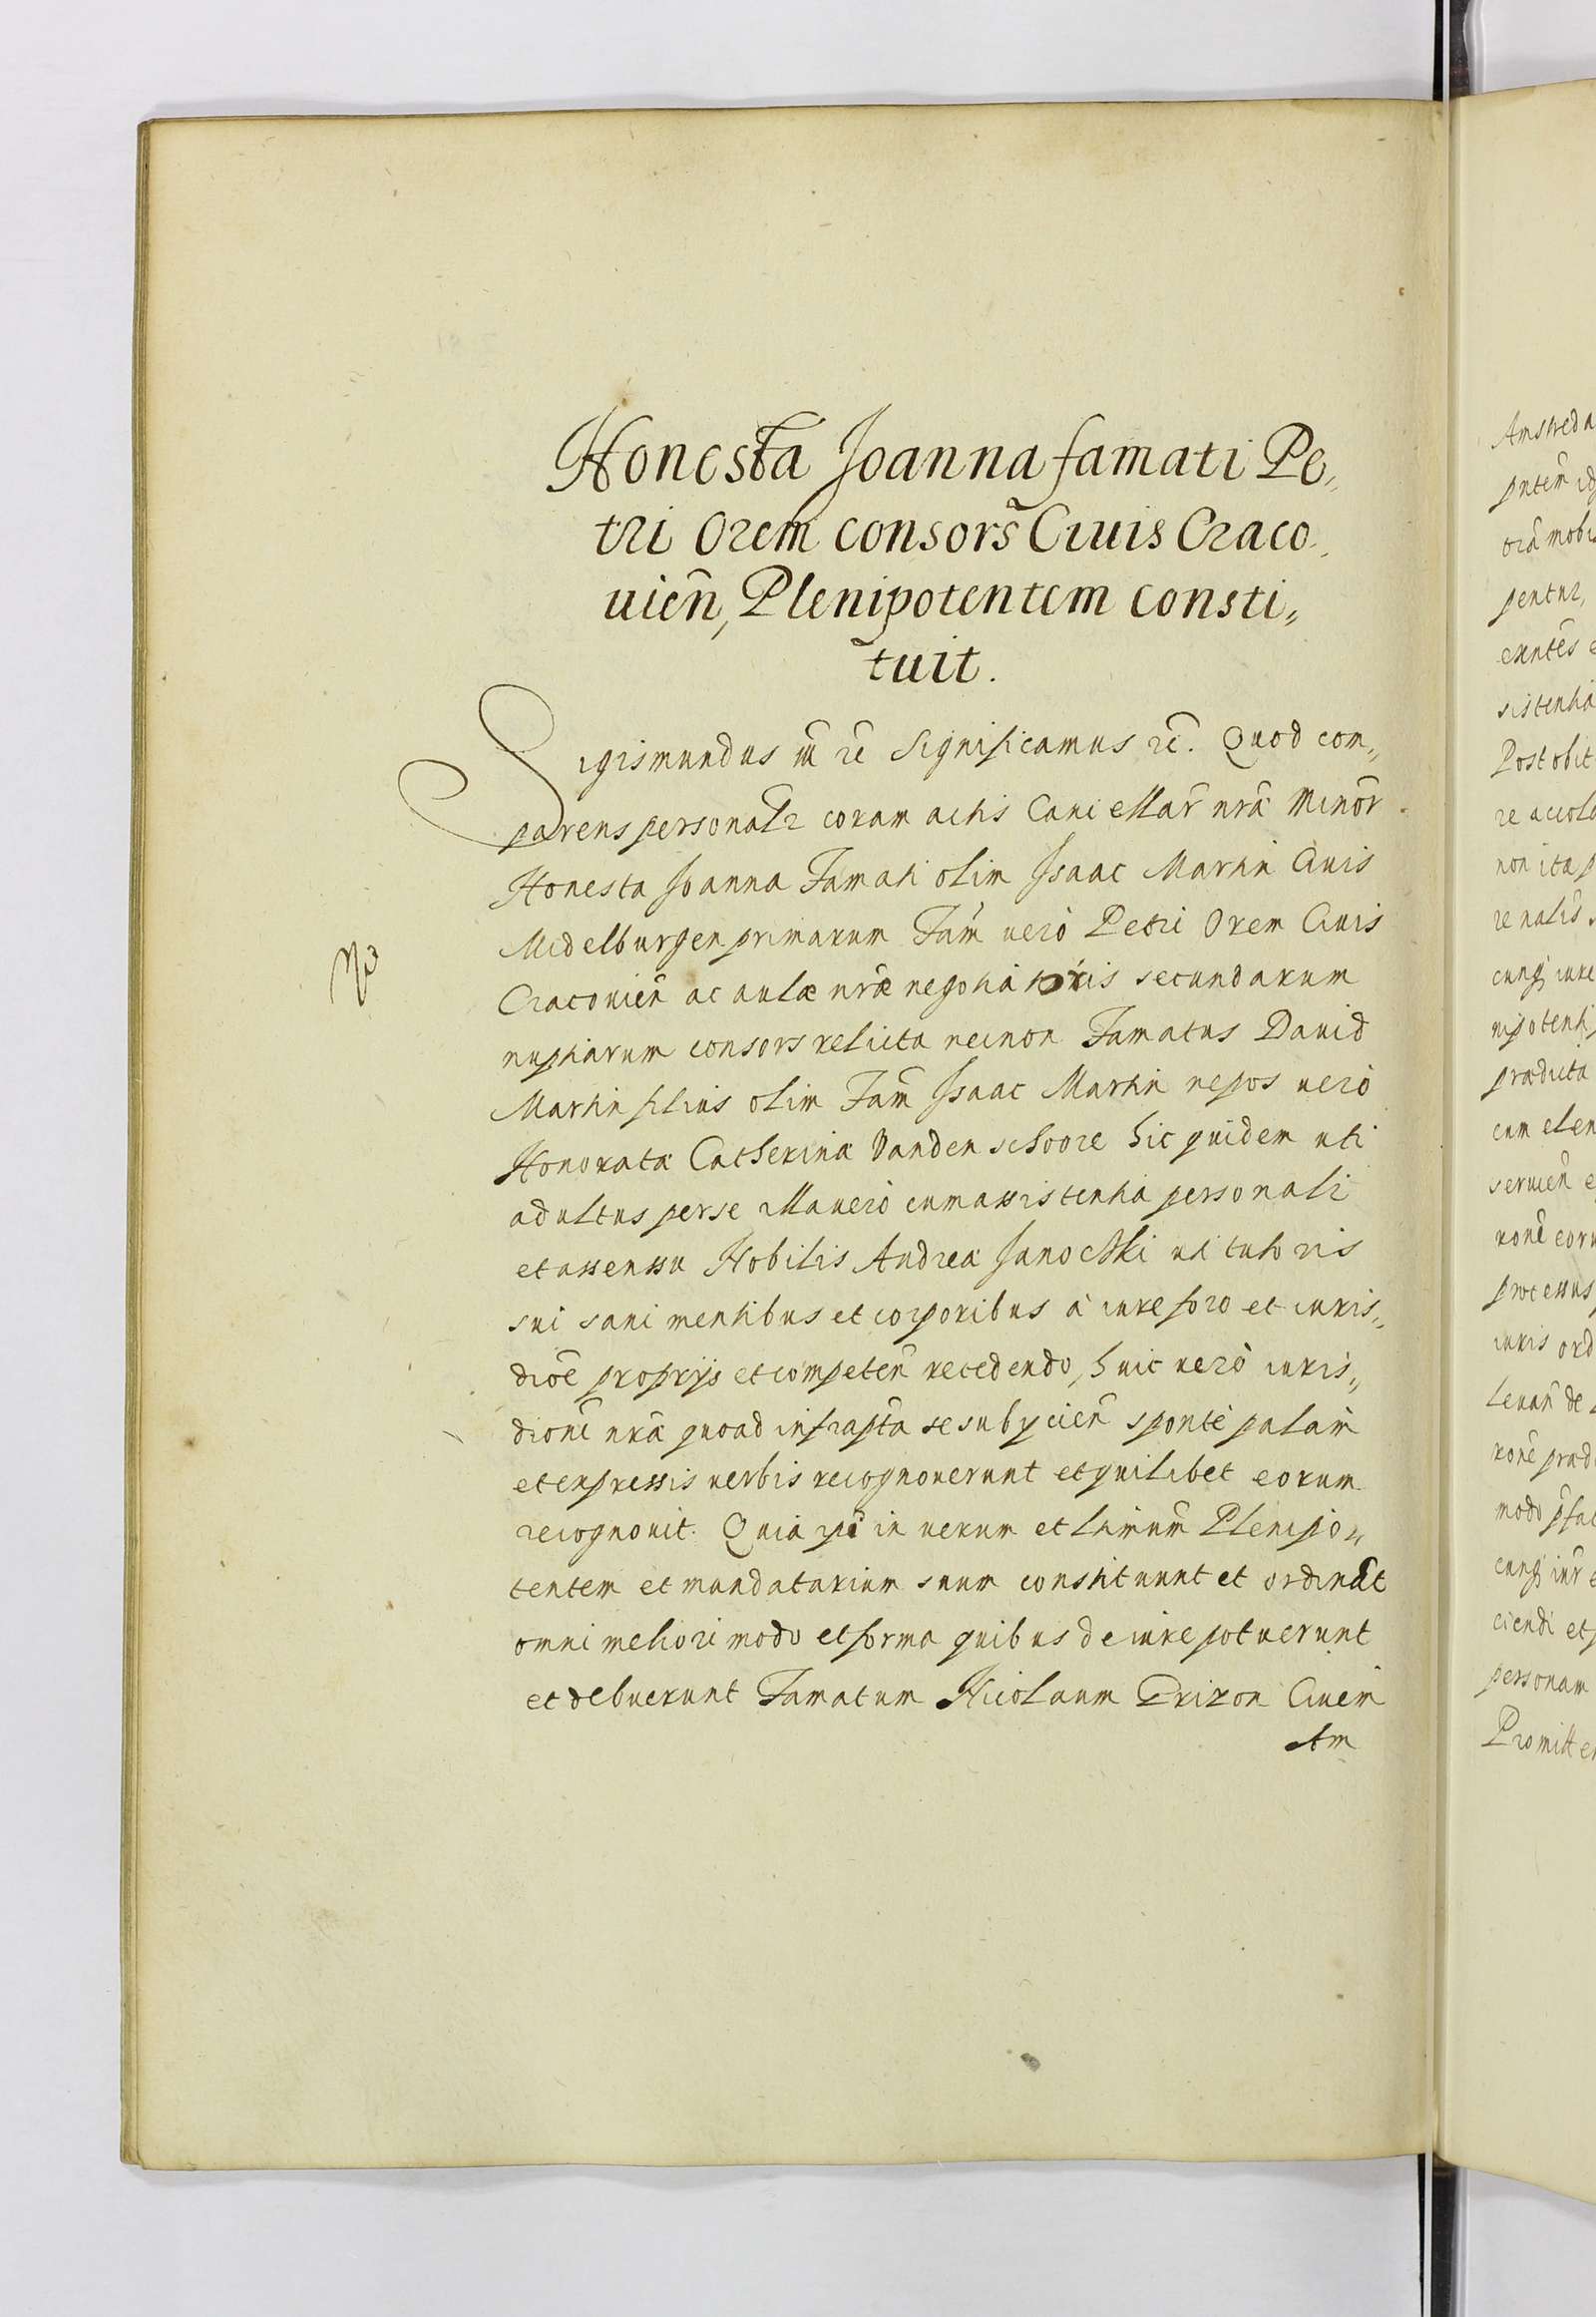 Honesta Joanna famati Pe„
tri Orem consors Ciuis Craco„
uien̄, Plenipotentem consti„
tuit.
Sigismundus m̃ rc̃ Significamus rc̃. Quod com„
parens personalr coram actis Cancellar̃ nrã Minor̃
Honesta Joanna Famati olim Isaac Martin Ciuis
Midelburgen primarum Fam̃ uerò Petri Orem Ciuis
Cracouien̄ ac aulæ nræ̃ negotiatoris secundarum
nuptiarum consors relicta necnon Famatus Dauid
Martin filius olim Fam̃ Isaac Martin nepos uerò
Honorata Catherina Vandenschoore hic quidem uti
adultus per se illa uerò cum assistentia personali
et assensu Nobilis Andrea Janockki uti tutoris
sui sani mentibus et corporibus à iure foro et iuris„
dioẽ proprijs et competen̄ recedendo, huic uerò iuris„
dioni nrã quoad infrapta se subijcien̄ sponte palàm
et expressis uerbis recognouerunt et quilibet eorum
recognouit. Quia ipi in uerum et ltimum̃ Plenipo„
tentem et mandatarium suum constituunt et ordinãt
omni meliori modo et forma quibus de iure potuerunt
et debuerunt Famatum Nicolaum Drixon Ciuem
Am
Amstreda
pntem̃
mobi
pentur,
exntes̃
sistentia
Post obit
re accola
non ita p
re nalis̃
cunq iure
nipotenti
prædicta
cum elen
seruien̄ e
rone eoru
processus
iuris ord
leuan̄ de
rone præd
modo pfat
cunq iur̃
ciendi et
personam
Promitten